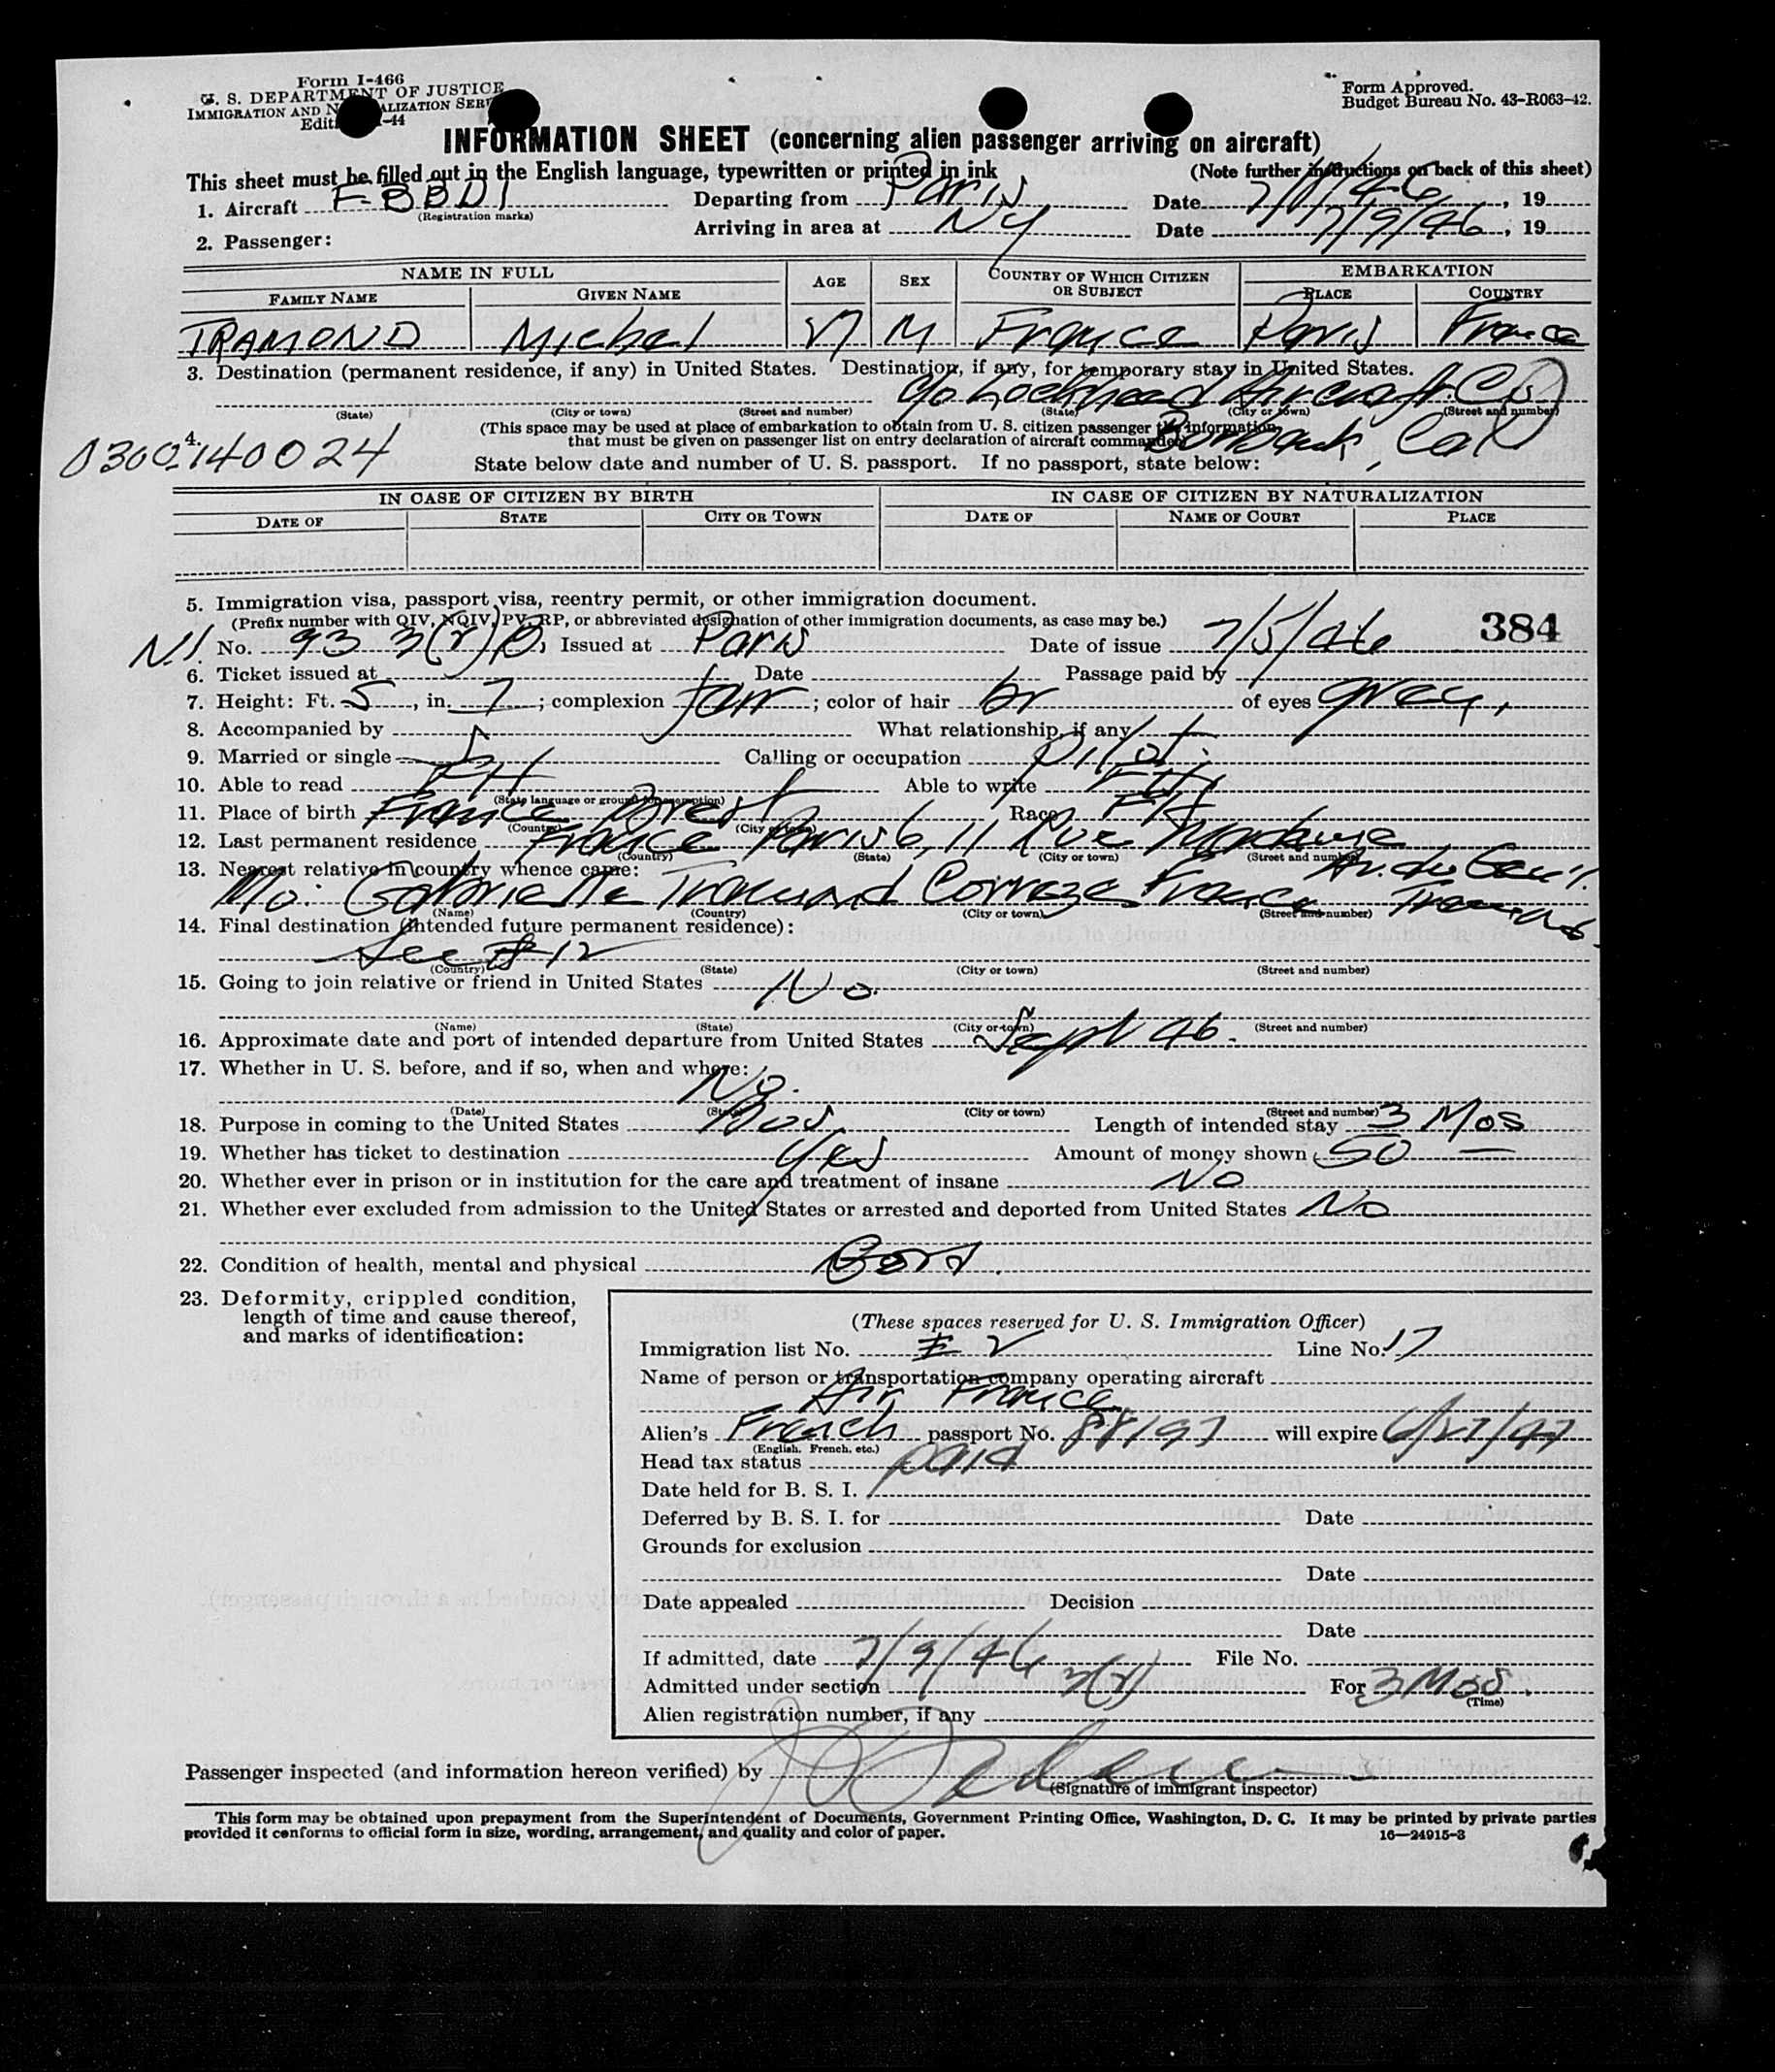 Form I-466
U. S. DEPARTMENT OF JUSTICE
IMMIGRATION AND N ALIZATION SER
Editi -44
Form Approved.
Budget Bureau No. 43-R063-42.
INFORMATION SHEET (concerning alien passenger arriving on aircraft)
This sheet must be filled out in the English language, typewritten or printed in ink (Note further instructions on back of this sheet)
1. Aircraft F-BBDI Departing from Paris Date 46, 19
(Registration marks)
2. Passenger: Arriving in area at NY Date 7/9/46, 19
NAME IN FULL AGE SEX COUNTRY OF WHICH CITIZEN OR SUBJECT EMBARKATION
FAMILY NAME GIVEN NAME PLACE COUNTRY
TRAMOND Michel M France Paris France
3. Destination (permanent residence, if any) in United States. Destination, if any, for temporary stay in United States.
c/o Lockheed Aircraft Co
(State) (City or town) (Street and number) (State) (City or town) (Street and number)
(This space may be used at place of embarkation to obtain from U. S. citizen passenger the information
that must be given on passenger list on entry declaration of aircraft commander) Burbank, Cal
0300140024 4. State below date and number of U. S. passport. If no passport, state below:
IN CASE OF CITIZEN BY BIRTH IN CASE OF CITIZEN BY NATURALIZATION
DATE OF STATE CITY OR TOWN DATE OF NAME OF COURT PLACE
5. Immigration visa, passport visa, reentry permit, or other immigration document.
(Prefix number with QIV, NQIV, PV, RP, or abbreviated designation of other immigration documents, as case may be.) 384
No. 93 3(2) Issued at Paris Date of issue 7/5/46
6. Ticket issued at Date Passage paid by
7. Height: Ft. 5, in. 7; complexion fair; color of hair br of eyes grey,
8. Accompanied by What relationship, if any
9. Married or single S Calling or occupation Pilot.
10. Able to read Able to write
(State language or ground for exemption)
11. Place of birth France Brest Race Fr
(Country) (City or town)
12. Last permanent residence France Paris 6, 11 Rue
(Country) (State) (City or town) (Street and number)
13. Nearest relative in country whence came:
Mo: Gabrielle Tramond Correze France
(Name) (Country) (City or town) (Street and number)
14. Final destination (intended future permanent residence):
See # 12
(Country) (State) (City or town) (Street and number)
15. Going to join relative or friend in United States No.
(Name) (State) (City or town) (Street and number)
16. Approximate date and port of intended departure from United States Sept 46.
17. Whether in U. S. before, and if so, when and where:
No.
(Date) (State) (City or town) (Street and number)
18. Purpose in coming to the United States Bus. Length of intended stay 3 Mos
19. Whether has ticket to destination Yes Amount of money shown 50 —
20. Whether ever in prison or in institution for the care and treatment of insane No
21. Whether ever excluded from admission to the United States or arrested and deported from United States No
22. Condition of health, mental and physical Good.
23. Deformity, crippled condition,
length of time and cause thereof,
and marks of identification:
(These spaces reserved for U. S. Immigration Officer)
Immigration list No. 2 Line No. 17
Name of person or transportation company operating aircraft
Air France
Alien's French passport No. 88193 will expire 6/27/47
(English, French, etc.)
Head tax status paid
Date held for B. S. I.
Deferred by B. S. I. for Date
Grounds for exclusion
Date
Date appealed Decision
Date
If admitted, date 7/9/46 File No.
Admitted under section 3(2) For 3 Mos.
(Time)
Alien registration number, if any
Passenger inspected (and information hereon verified) by
(Signature of immigrant inspector)
This form may be obtained upon prepayment from the Superintendent of Documents, Government Printing Office, Washington, D. C. It may be printed by private parties
provided it conforms to official form in size, wording, arrangement, and quality and color of paper. 16—24915-3